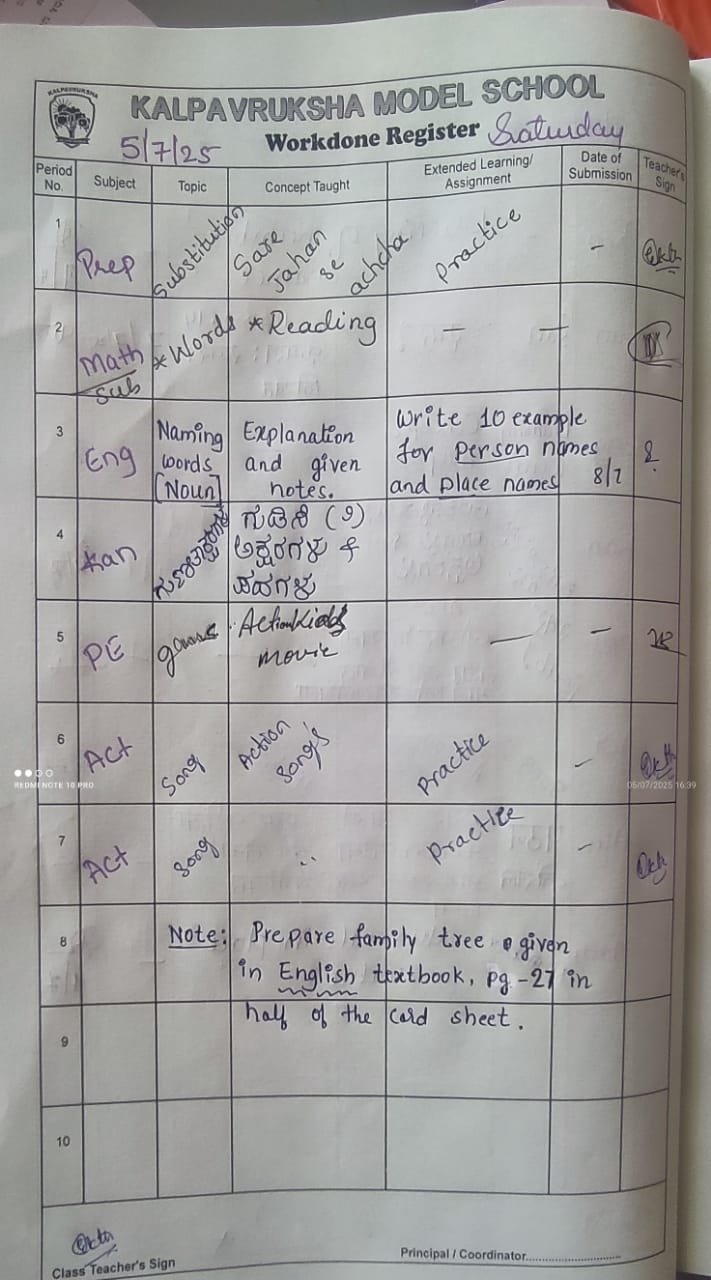 KALPAVRUKSHA
KALPAVRUKSHA MODEL SCHOOL
5/7/25 Workdone Register Saturday
Period No. Subject Topic Concept Taught Extended Learning/ Assignment Date of Submission Teacher's Sign
1 Prep Substitution Sare Jahan se achcha Practice -
2 Math *Words *Reading — —
Sub
3 Eng Naming Explanation Write 10 example
words and given for person names
[Noun] notes. and place names 8/7
4 Kan ಗುಣಿತಾಕ್ಷರ ಗುಡಿಸಿ (ಿ)
ಅಕ್ಷರಗಳು &
ಪದಗಳು
5 PE games Action Kids — —
movie
6 Act Song Action Songs Practice -
7 Act Song ,, Practice -
8 Note: Prepare family tree given
in English textbook, pg -27 in
half of the card sheet.
9
10
Class Teacher's Sign
Principal / Coordinator
REDMI NOTE 10 PRO
05/07/2025 16:39